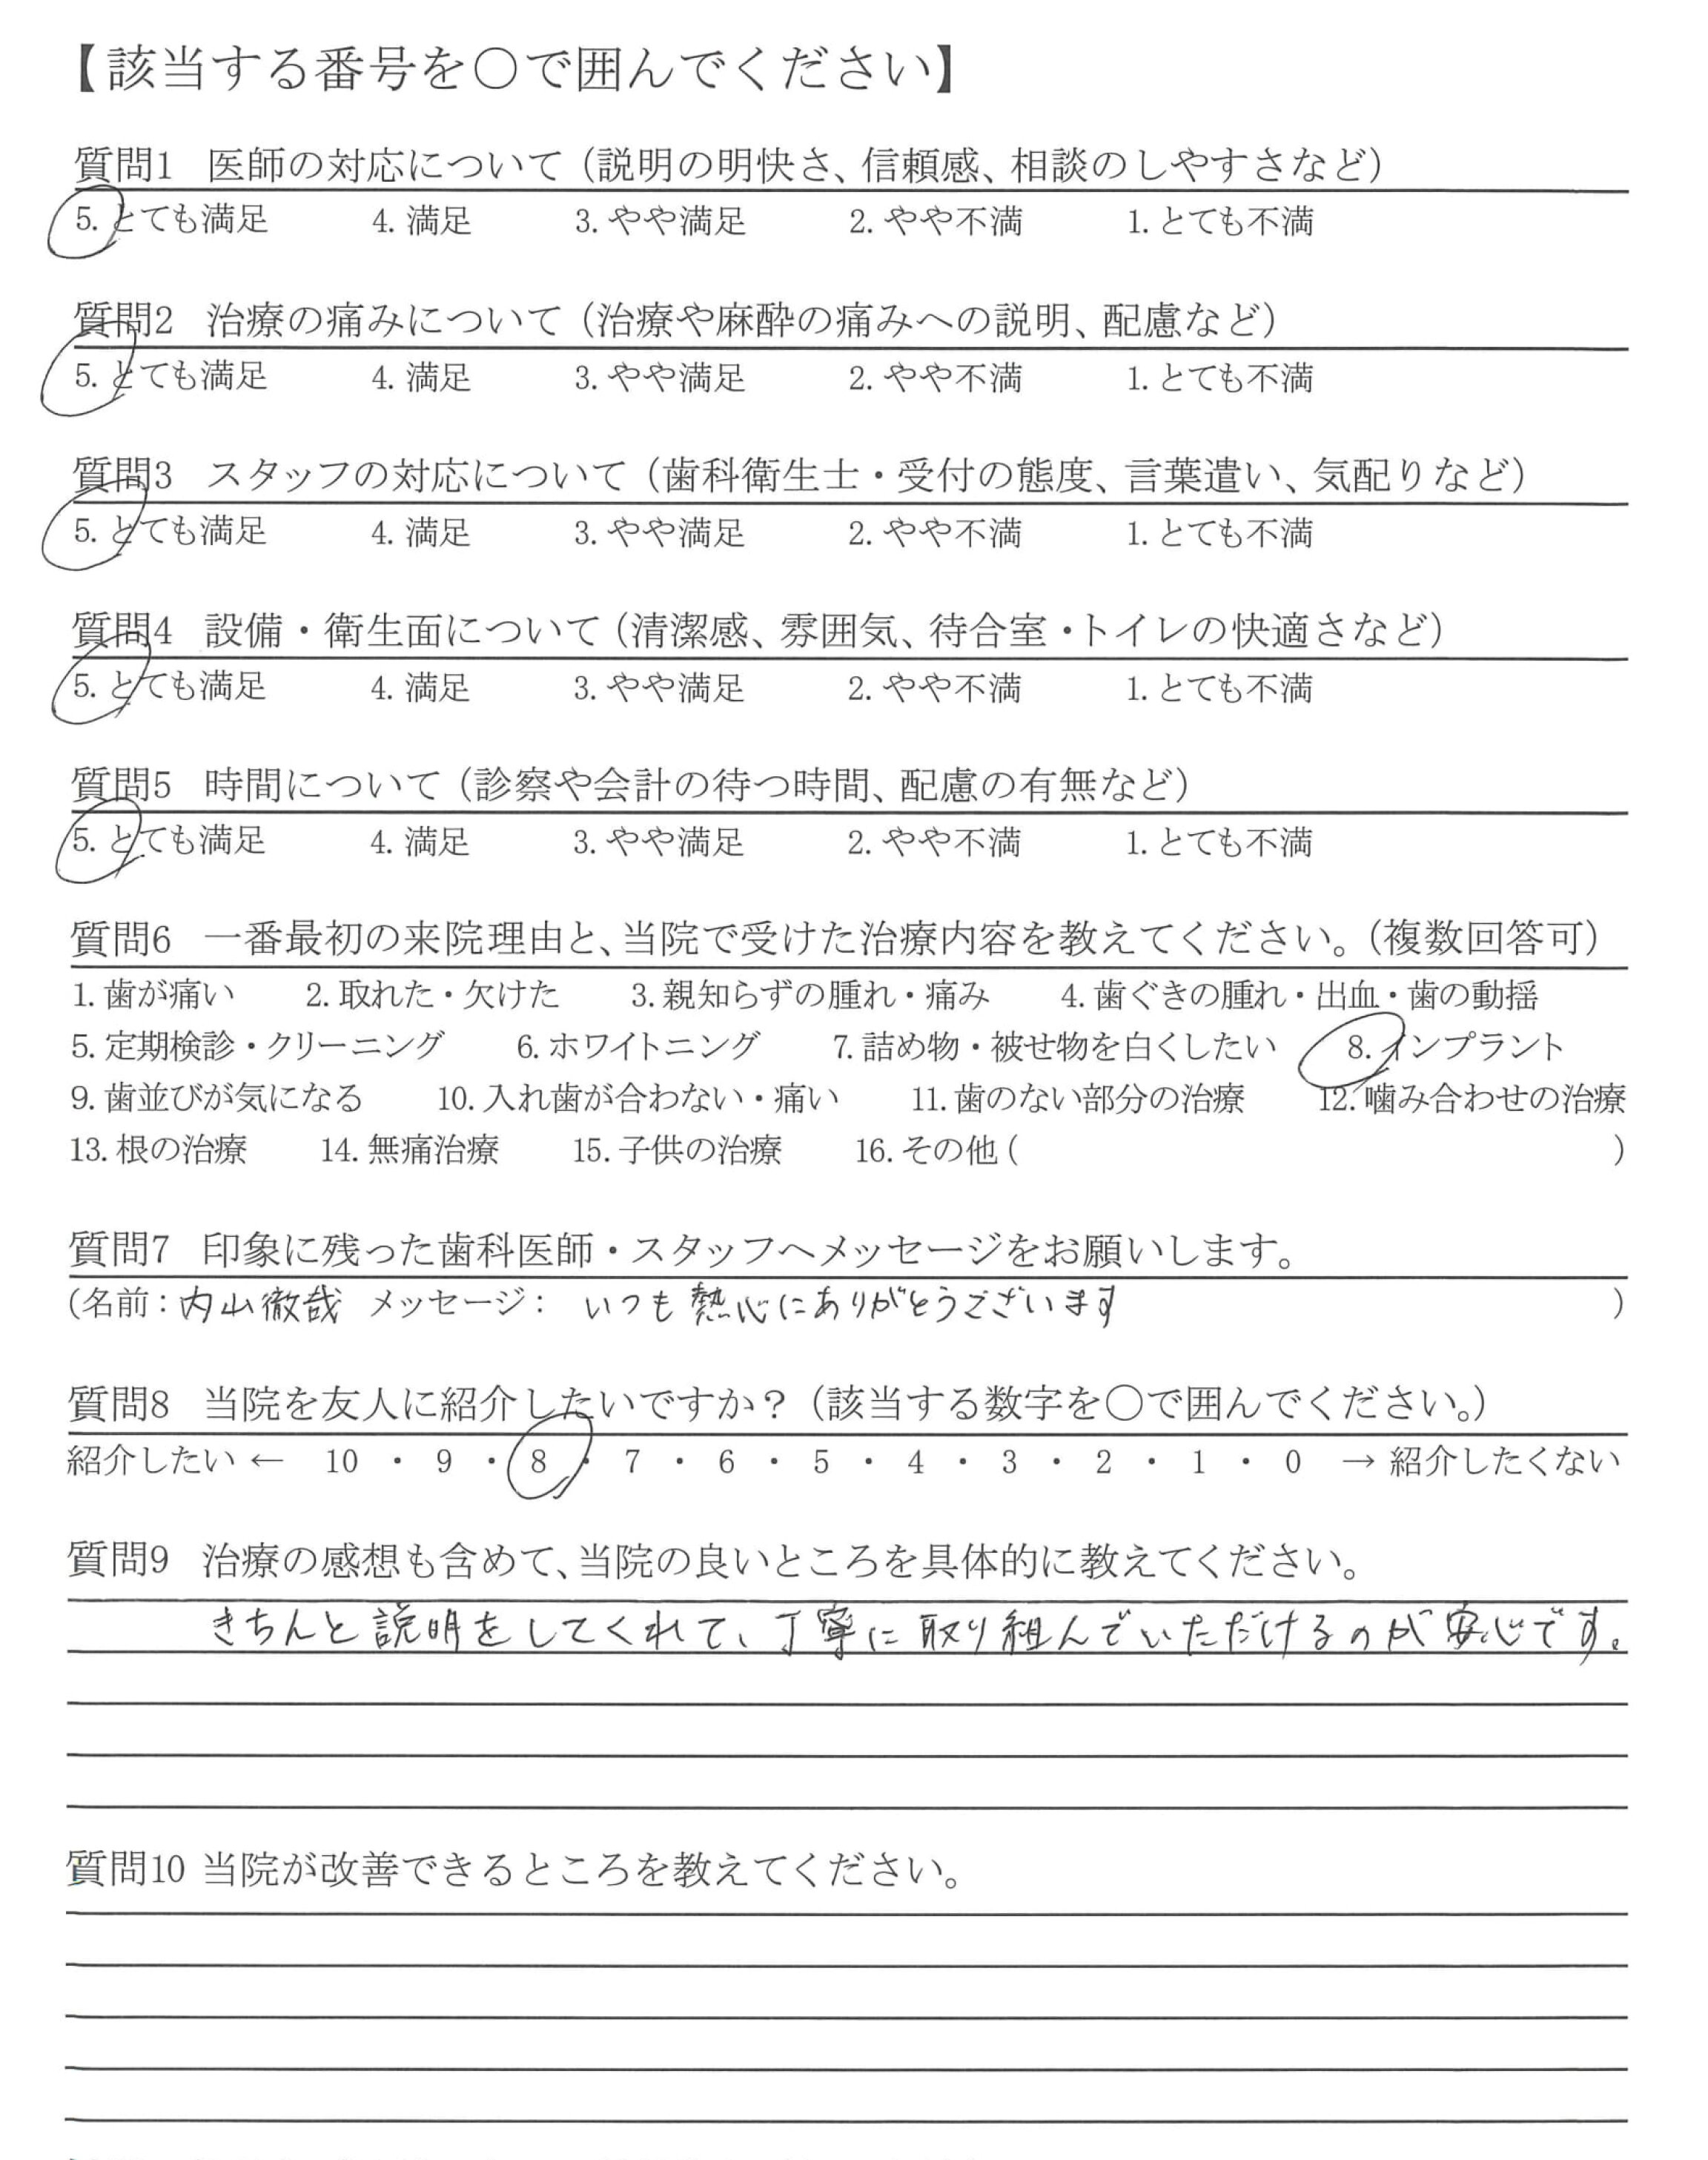 【該当する番号を〇で囲んでください】
質問1 医師の対応について（説明の明快さ、信頼感、相談のしやすさなど）
5. とても満足 4. 満足 3. やや満足 2. やや不満 1. とても不満
質問2 治療の痛みについて（治療や麻酔の痛みへの説明、配慮など）
5. とても満足 4. 満足 3. やや満足 2. やや不満 1. とても不満
質問3 スタッフの対応について（歯科衛生士・受付の態度、言葉遣い、気配りなど）
5. とても満足 4. 満足 3. やや満足 2. やや不満 1. とても不満
質問4 設備・衛生面について（清潔感、雰囲気、待合室・トイレの快適さなど）
5. とても満足 4. 満足 3. やや満足 2. やや不満 1. とても不満
質問5 時間について（診察や会計の待つ時間、配慮の有無など）
5. とても満足 4. 満足 3. やや満足 2. やや不満 1. とても不満
質問6 一番最初の来院理由と、当院で受けた治療内容を教えてください。（複数回答可）
1. 歯が痛い 2. 取れた・欠けた 3. 親知らずの腫れ・痛み 4. 歯ぐきの腫れ・出血・歯の動揺
5. 定期検診・クリーニング 6. ホワイトニング 7. 詰め物・被せ物を白くしたい 8. インプラント
9. 歯並びが気になる 10. 入れ歯が合わない・痛い 11. 歯のない部分の治療 12. 噛み合わせの治療
13. 根の治療 14. 無痛治療 15. 子供の治療 16. その他（ ）
質問7 印象に残った歯科医師・スタッフへメッセージをお願いします。
（名前：内山徹哉 メッセージ： いつも熱心にありがとうございます ）
質問8 当院を友人に紹介したいですか？（該当する数字を〇で囲んでください。）
紹介したい ← 10 ・ 9 ・ 8 ・ 7 ・ 6 ・ 5 ・ 4 ・ 3 ・ 2 ・ 1 ・ 0 → 紹介したくない
質問9 治療の感想も含めて、当院の良いところを具体的に教えてください。
きちんと説明をしてくれて、丁寧に取り組んでいただけるのが安心です。
質問10 当院が改善できるところを教えてください。